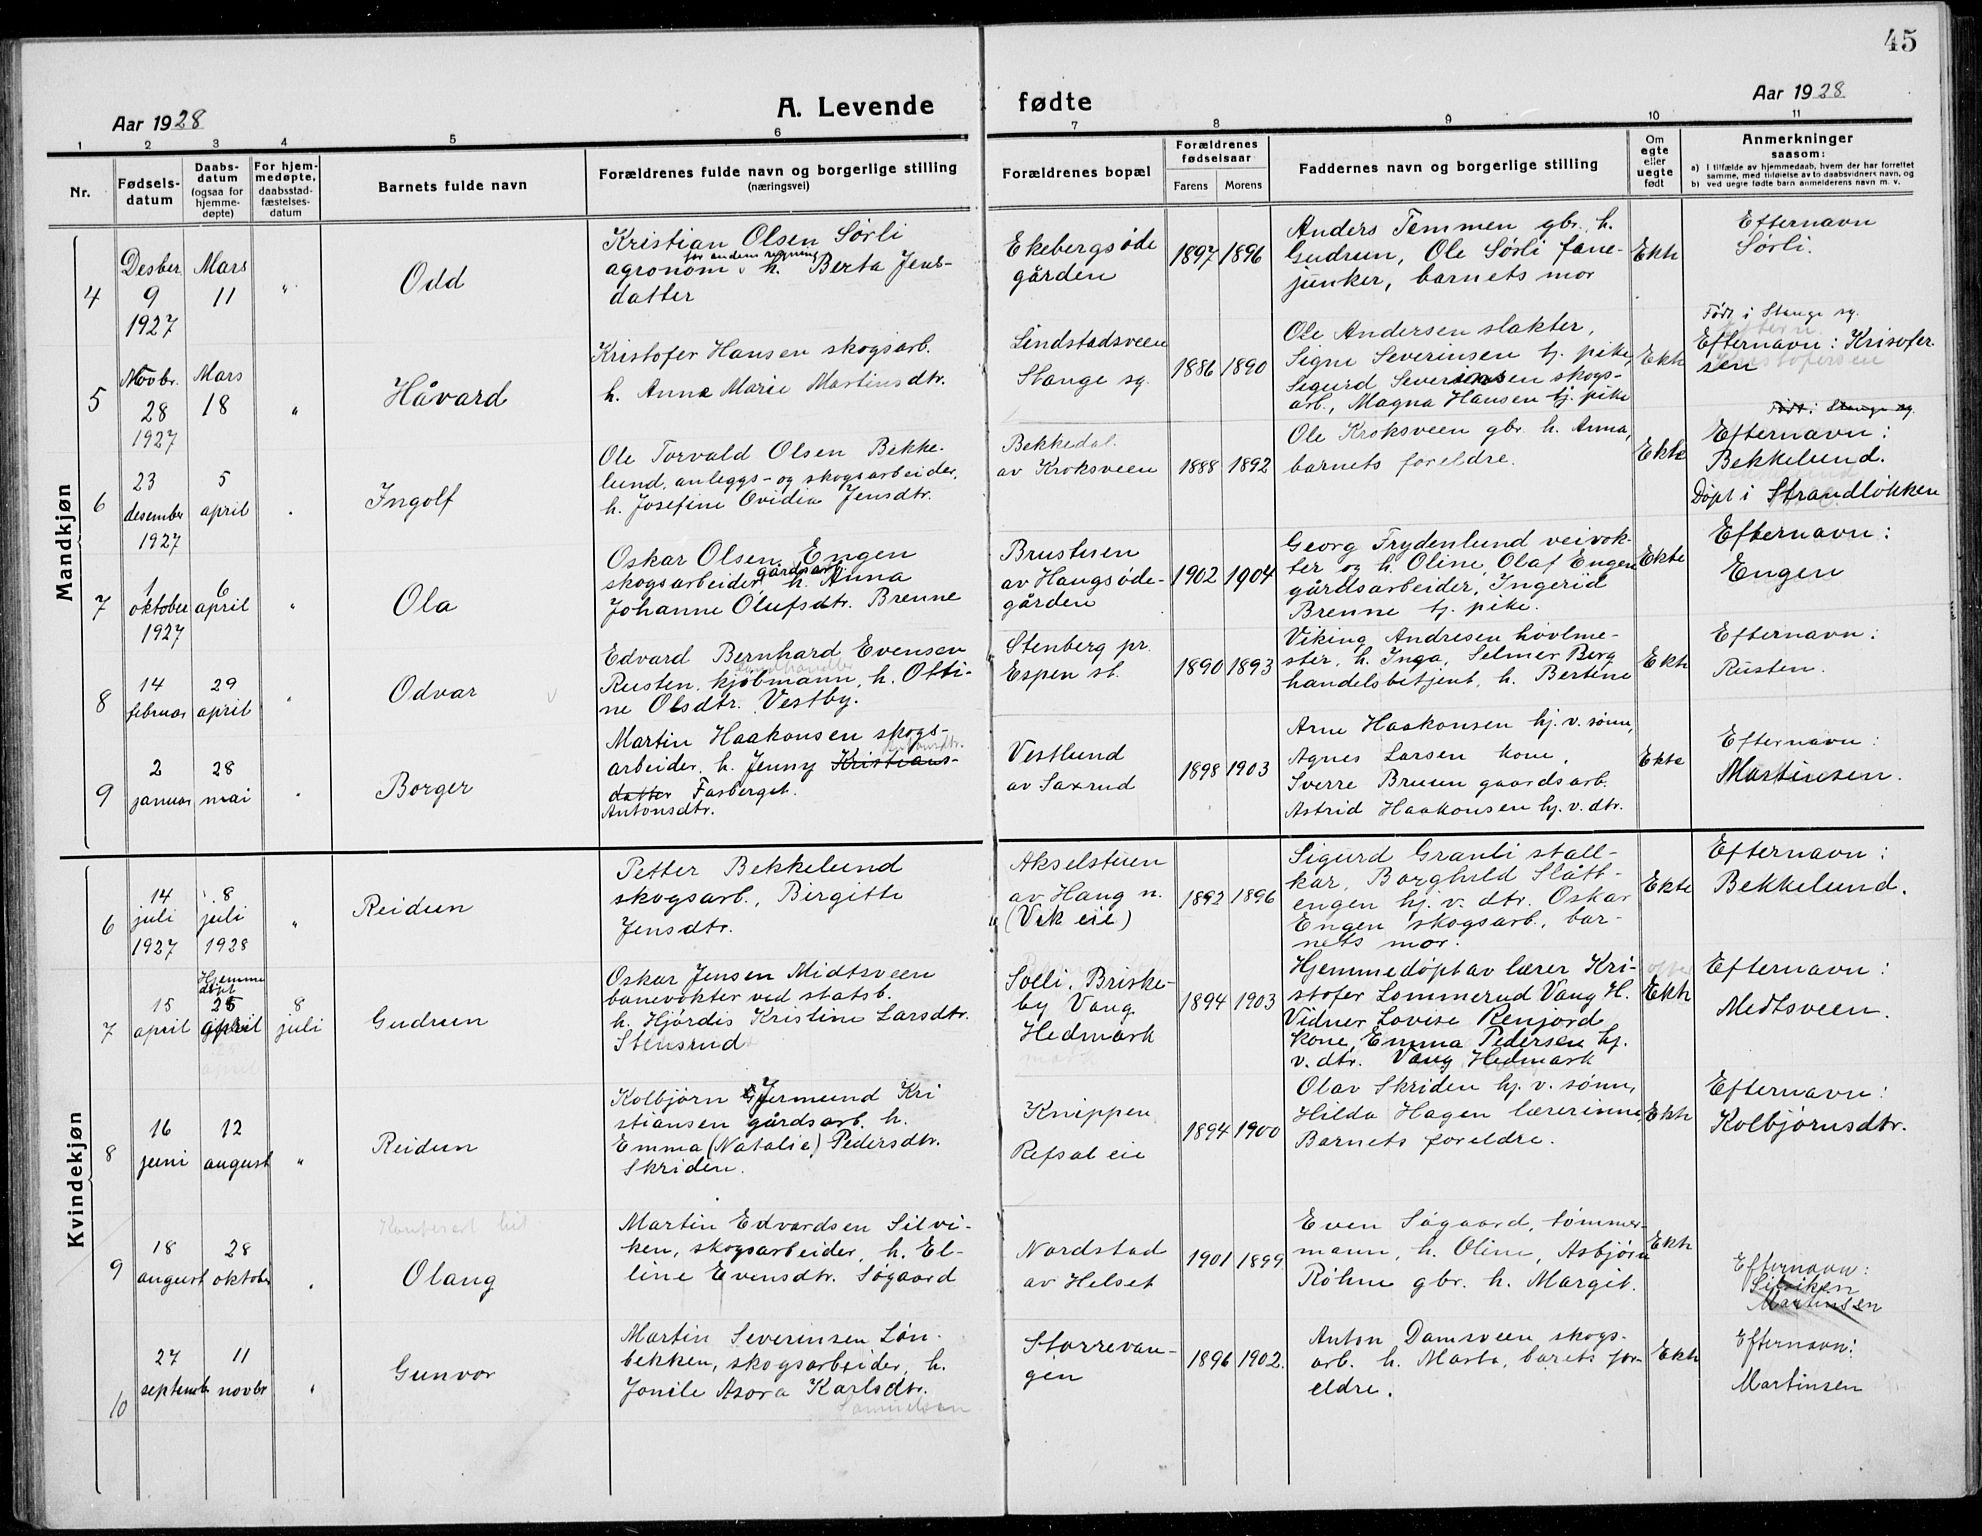 45
Aar 1928
A. Levende fødte
Aar 1928
1 2 3 4 5 6 7 8 9 10 11
Nr.
Fødsels-
datum
Daabs-
datum
(ogsaa for
hjemme-
døpte)
For hjem-
medøpte,
daabsstad-
fæstelses-
datum
Barnets fulde navn
Forældrenes fulde navn og borgerlige stilling
(næringsvei)
Forældrenes bopæl
Forældrenes
fødselsaar
Farens Morens
Faddernes navn og borgerlige stilling
Om
egte
eller
uegte
født
Anmerkninger
saasom:
a) I tilfælde av hjemmedaab, hvem der har forrettet
samme, med tilføielse av to daabsvidners navn, og
b) ved uegte fødte barn anmelderens navn m. v.
Mandkjøn
4
Desber
9
1927
Mars
11
"
Odd
Kristian Olsen Sørli
for andens regning
agronom h. Berta Jens-
datter
Ekebergsøde
gården
1897 1896
Anders Temmen gbr. h.
Gudrun, Ole Sørli fane-
junker, barnets mor
Ekte
Efternavn
Sørli.
5
Novbr.
28
1927
Mars
18
"
Håvard
Kristofer Hansen skogsarb.
h. Anna Marie Martinsdtr.
Lindstadsveen
Stange sg.
1886 1890
Ole Andersen slakter,
Signe Severinsen tj. pike,
Sigurd Severinsen skogs-
arb., Magna Hansen tj. pike
Ekte
Født i Stange sg.
Efternavn: Krisofer
sen
6
23
desember
1927
5
april
"
Ingolf
Ole Torvald Olsen Bekke-
lund, anleggs- og skogsarbeider,
h. Josefine Ovidia Jensdtr.
Bekkedal
av Kroksveen
1888 1892
Ole Kroksveen gbr. h. Anna,
barnets foreldre.
Ekte
Født i Stange sg.
Efternavn:
Bekkelund.
Døpt i Strandløkken
7
1
oktober
1927
6
april
"
Ola
Oskar Olsen Engen
skogsarbeider, gårdsarb. h. Anna
Johanne Olufsdtr. Brenne
Brustuen
av Haugsøde-
gården
1902 1904
Georg Frydenlund veivok-
ter og h. Oline, Olaf Engen
gårdsarbeider, Ingerid
Brenne tj. pike.
Ekte
Efternavn:
Engen
8
14
februar
29
april
"
Odvar
Edvard Bernhard Evensen
landhandler
Rusten, kjøbmann, h. Otti-
ne Olsdtr. Vestby.
Stenberg pr.
Espen st.
1890 1893
Viking Andresen høvlme-
ster, h. Inga, Selmer Berg
handelsbetjent, h. Bertine
Ekte
Efternavn:
Rusten.
9
2
januar
28
mai
"
Borger
Martin Haakonsen skogs-
Antonsdtr.
arbeider, h. Jenny Kristians-
datter Farberget.
Antonsdtr.
Vestlund
av Saxrud
1898 1903
Arne Haakonsen hj. v. sønn,
Agnes Larsen kone,
Sverre Bruun gaardsarb.
Astrid Haakonsen hj. v. dtr.
Ekte
Efternavn:
Martinsen.
Kvindekjøn
6
14
juli
1927
8
juli
1928
"
Reidun
Petter Bekkelund
skogsarb., Birgitte
Jensdtr.
Akselstuen
av Haug n.
(Vik eie)
1892 1896
Sigurd Granli stall-
kar, Borghild Slått-
engen hj. v. dtr. Oskar
Engen skogsarb., bar-
nets mor.
Ekte
Efternavn:
Bekkelund.
7
15
april
Hjemme
døpt
25
april
8
juli
Gudrun
Oskar Jensen Midtsveen
banevokter ved statsb.
h. Hjørdis Kristine Larsdtr.
Stensrud
Solli, Briske-
by Vang
Hedmark
1894 1903
Hjemmedøpt av lærer Kri-
stofer Lommerud Vang H.
Vidner Lovise Renjord
kone, Emma Pedersen hj.
v. dtr. Vang Hedmark
Ekte
Efternavn:
Midtsveen.
8
16
juni
12
august
"
Reidun
Kolbjørn Jermund Kri
stiansen gårdsarb. h.
Emma (Natalie) Pedersdtr.
Skriden.
Knippen
Refsal eie
1894 1900
Olav Skriden hj. v. sønn,
Hilda Hagen lærerinne,
Barnets foreldre.
Ekte
Efternavn:
Kolbjørnsdtr.
9
18
august
28
oktober
"
Olaug
Martin Edvardsen Silvi-
ken, skogsarbeider, h. El-
line Evensdtr. Søgaard
Nordstad
av Helset
1901 1899
Even Søgaard, tømmer-
mann, h. Oline, Asbjørn
Røhne gbr. h. Margit.
Ekte
Efternavn:
Silviken
Martinsen
10
27
septembr
11
novbr
"
Gunvor
Martin Severinsen Løn-
bekken, skogsarbeider, h.
Jonile Asora Karlsdtr.
Samuelsen
Storrevan-
gen
1896 1902.
Anton Damsveen skogs-
arb. h. Marta, barets for-
eldre.
Ekte
Efternavn:
Martinsen